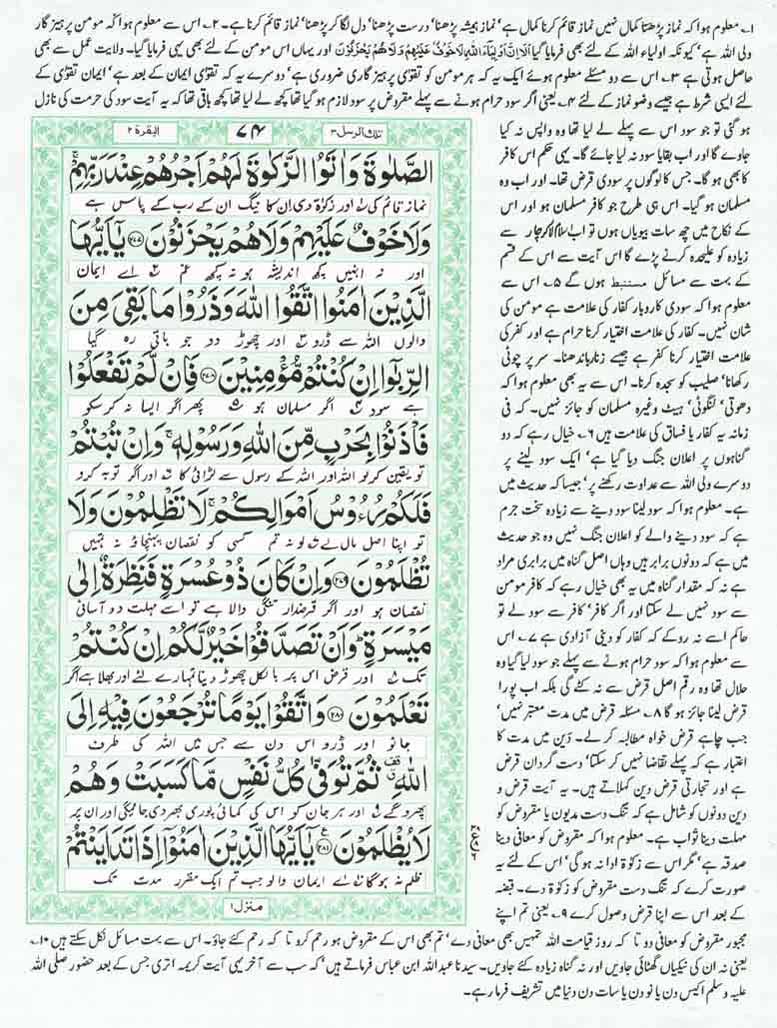 ۱۔ معلوم ہوا کہ نماز پڑھنا کمال نہیں نماز قائم کرنا کمال ہے' نماز ہمیشہ پڑھنا' درست پڑھنا' دل لگا کر پڑھنا' نماز قائم کرنا ہے۔ ۲۔ اس سے معلوم ہوا کہ مومن پرہیز گار
ولی اللہ ہے' کیونکہ اولیاء اللہ کے لئے بھی فرمایا گیا اَلَا اِنَّ اَوْلِیَآءَ اللهِ لَا خَوْفٌ عَلَیْهِمْ وَ لَا هُمْ یَحْزَنُوْنَ اور یہاں اس مومن کے لئے بھی یہی فرمایا گیا۔ ولایت عمل سے بھی
حاصل ہوتی ہے ۳۔ اس سے دو مسئلے معلوم ہوئے ایک یہ کہ ہر مومن کو تقویٰ پرہیز گاری ضروری ہے' دوسرے یہ کہ تقویٰ ایمان کے بعد ہے' ایمان تقویٰ کے
لئے ایسی شرط ہے جیسے وضو نماز کے لئے ۴۔ یعنی اگر سود حرام ہونے سے پہلے مقروض پر سود لازم ہو گیا تھا کچھ لے لیا تھا کچھ باقی تھا کہ یہ آیت سود کی حرمت کی نازل
ہو گئی تو جو سود اس سے پہلے لے لیا تھا وہ واپس نہ کیا
جاوے گا اور اب بقایا سود نہ لیا جائے گا۔ یہی حکم اس کافر
کا بھی ہو گا۔ جس کا لوگوں پر سودی قرض تھا۔ اور اب وہ
مسلمان ہو گیا۔ اس ہی طرح جو کافر مسلمان ہو اور اس
کے نکاح میں چھ سات بیویاں ہوں تو اب اسلام لا کر چار سے
زیادہ کو علیحدہ کرنے پڑے گا اس آیت سے اس کے قسم
کے بہت سے مسائل مستنبط ہوں گے ۵۔ اس سے
معلوم ہوا کہ سودی کاروبار کفار کی علامت ہے مومن کی
شان نہیں۔ کفار کی علامت اختیار کرنا حرام ہے اور کفر کی
علامت اختیار کرنا کفر ہے جیسے زنار باندھنا۔ سر پر چوٹی
رکھنا' صلیب کو سجدہ کرنا۔ اس سے یہ بھی معلوم ہوا کہ
دھوتی' لنگوٹی' ہیٹ وغیرہ مسلمان کو جائز نہیں۔ کہ فی
زمانہ یہ کفار یا فساق کی علامت ہیں ۶۔ خیال رہے کہ دو
گناہوں پر اعلان جنگ دیا گیا ہے' ایک سود لینے پر
دوسرے ولی اللہ سے عداوت رکھنے پر' جیسا کہ حدیث میں
ہے۔ معلوم ہوا کہ سود لینا سود دینے سے زیادہ سخت جرم
ہے کہ سود دینے والے کو اعلان جنگ نہیں وہ جو حدیث
میں ہے کہ دونوں برابر ہیں وہاں اصل گناہ میں برابری مراد
ہے نہ کہ مقدار گناہ میں یہ بھی خیال رہے کہ کافر مومن
سے سود نہیں لے سکتا اور اگر کافر' کافر سے سود لے تو
حاکم اسے نہ روکے کہ کفار کو دینی آزادی ہے ۷۔ اس
سے معلوم ہوا کہ سود حرام ہونے سے پہلے جو سود لیا گیا وہ
حلال تھا وہ رقم اصل قرض سے نہ کٹے گی بلکہ اب پورا
قرض لینا جائز ہو گا ۸۔ مسئلہ قرض میں مدت معتبر نہیں'
جب چاہے قرض خواہ مطالبہ کر لے۔ دَین میں مدت کا
اعتبار ہے کہ پہلے تقاضا نہیں کر سکتا' دست گردان قرض
ہے اور تجارتی قرض دین کہلاتے ہیں۔ یہ آیت قرض و
دین دونوں کو شامل ہے کہ تنگ دست مدیون یا مقروض کو
مہلت دینا ثواب ہے۔ معلوم ہوا کہ مقروض کو معافی دینا
صدقہ ہے' مگر اس سے زکوٰۃ ادا نہ ہو گی' اس کے لئے یہ
صورت کرے کہ تنگ دست مقروض کو زکوٰۃ دے۔ قبضہ
کے بعد اس سے اپنا قرض وصول کرے ۹۔ یعنی تم اپنے
تلك الرسل ۳
۷۴
البقرة ۲
الصَّلٰوةَ وَاٰتَوُا الزَّكٰوةَ لَهُمْ اَجْرُهُمْ عِنْدَ رَبِّهِمْ ۚ
نماز قائم کی اور زکوٰۃ دی ان کا نیگ ان کے رب کے پاس ہے
وَلَا خَوْفٌ عَلَيْهِمْ وَلَا هُمْ يَحْزَنُوْنَ ﴿۲۷۷﴾ يٰٓاَيُّهَا
اور نہ انہیں کچھ اندیشہ ہو نہ کچھ غم اے ایمان
الَّذِيْنَ اٰمَنُوا اتَّقُوا اللّٰهَ وَذَرُوْا مَا بَقِيَ مِنَ
والوں اللہ سے ڈرو اور چھوڑ دو جو باقی رہ گیا
الرِّبٰٓوا اِنْ كُنْتُمْ مُّؤْمِنِيْنَ ﴿۲۷۸﴾ فَاِنْ لَّمْ تَفْعَلُوْا
ہے سود اگر مسلمان ہو پھر اگر ایسا نہ کرسکو
فَاْذَنُوْا بِحَرْبٍ مِّنَ اللّٰهِ وَرَسُوْلِهٖ ۚ وَاِنْ تُبْتُمْ
تو یقین کرلو اللہ اور اللہ کے رسول سے لڑائی کا اور اگر توبہ کرو
فَلَكُمْ رُءُوْسُ اَمْوَالِكُمْ ۚ لَا تَظْلِمُوْنَ وَلَا
تو اپنا اصل مال لے لو نہ تم کسی کو نقصان پہنچاؤ نہ تمہیں
تُظْلَمُوْنَ ﴿۲۷۹﴾ وَاِنْ كَانَ ذُوْ عُسْرَةٍ فَنَظِرَةٌ اِلٰى
نقصان ہو اور اگر قرضدار تنگی والا ہے تو اسے مہلت دو آسانی
مَيْسَرَةٍ ؕ وَاَنْ تَصَدَّقُوْا خَيْرٌ لَّكُمْ اِنْ كُنْتُمْ
تک اور قرض اس پر بالکل چھوڑ دینا تمہارے لئے اور بھلا ہے اگر
تَعْلَمُوْنَ ﴿۲۸۰﴾ وَاتَّقُوْا يَوْمًا تُرْجَعُوْنَ فِيْهِ اِلَى
جانو اور ڈرو اس دن سے جس میں اللہ کی طرف
اللّٰهِ ۗ ثُمَّ تُوَفّٰى كُلُّ نَفْسٍ مَّا كَسَبَتْ وَهُمْ
پھرو گے اور ہر جان کو اس کی کمائی پوری بھر دی جائیگی اور ان پر
لَا يُظْلَمُوْنَ ﴿۲۸۱﴾ يٰٓاَيُّهَا الَّذِيْنَ اٰمَنُوْٓا اِذَا تَدَايَنْتُمْ
ظلم نہ ہوگا اے ایمان والو جب تم ایک مقرر مدت تک
منزل ۱
مجبور مقروض کو معافی دو تا کہ روز قیامت اللہ تمہیں بھی معافی دے' تم بھی اس کے مقروض ہو رحم کرو تا کہ رحم کئے جاؤ۔ اس سے بہت مسائل نکل سکتے ہیں ۱۰۔
یعنی نہ ان کی نیکیاں گھٹائی جاویں اور نہ گناہ زیادہ کئے جاویں۔ سیدنا عبداللہ ابن عباس فرماتے ہیں' کہ سب سے آخر یہی آیت کریمہ اتری جس کے بعد حضور صلی اللہ
علیہ وسلم اکیس دن یا نو دن یا سات دن دنیا میں تشریف فرما رہے۔